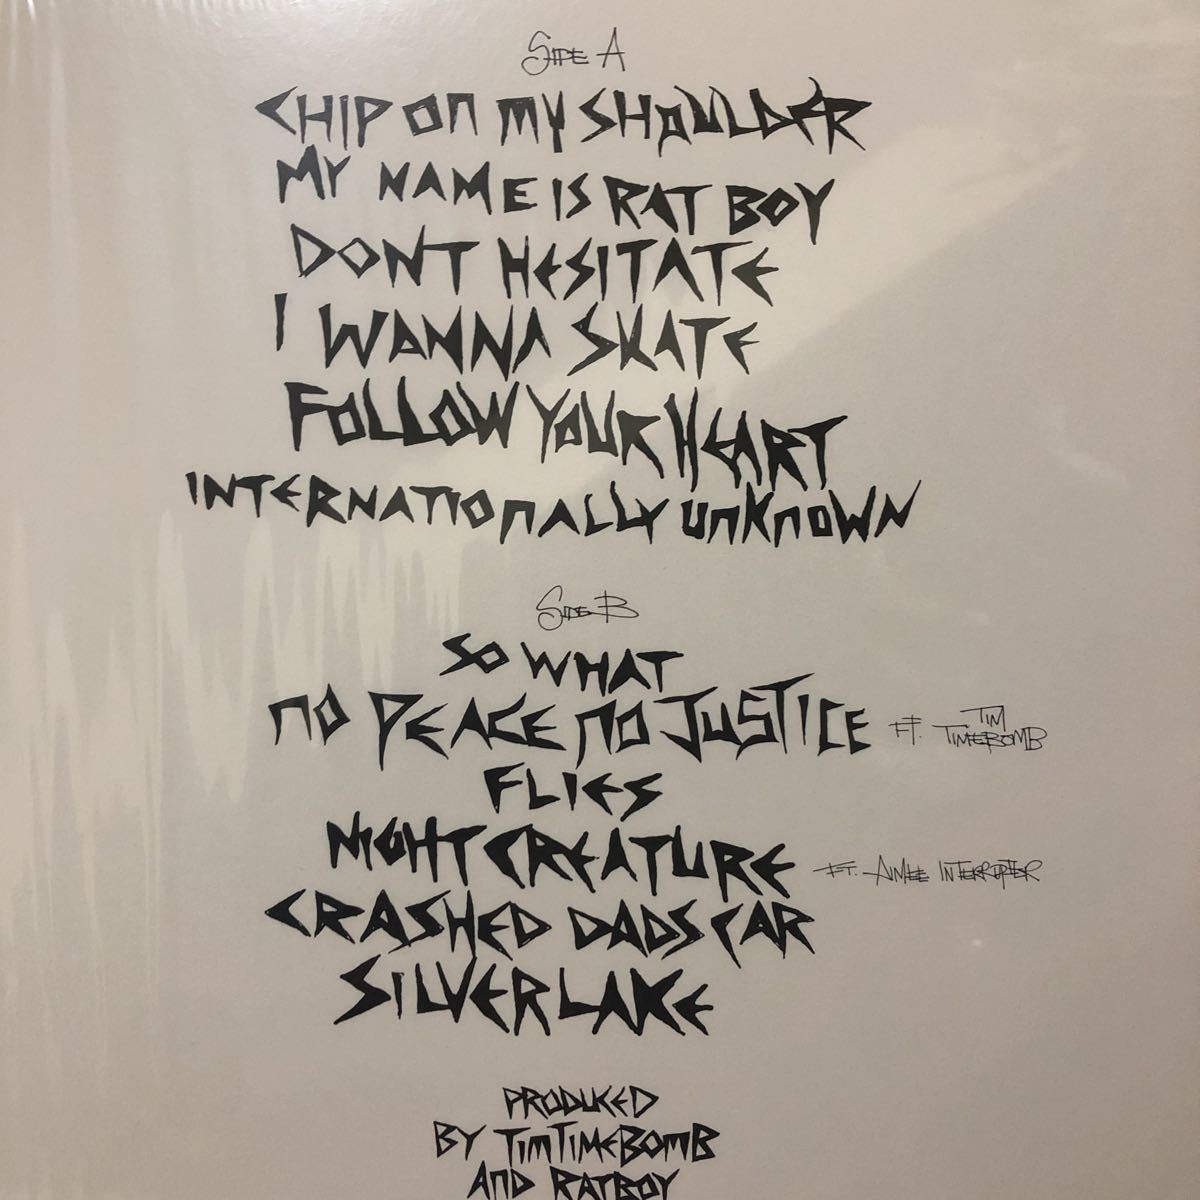 SIDE A
CHIP ON MY SHOULDER
MY NAME IS RAT BOY
DONT HESITATE
I WANNA SKATE
FOLLOW YOUR HEART
INTERNATIONALLY UNKNOWN
SIDE B
SO WHAT
NO PEACE NO JUSTICE FT. TIM TIMEBOMB
FLIES
NIGHT CREATURE FT. AIMEE INTERRUPTER
CRASHED DADS CAR
SILVERLAKE
PRODUCED
BY TIMTIMEBOMB
AND RATBOY